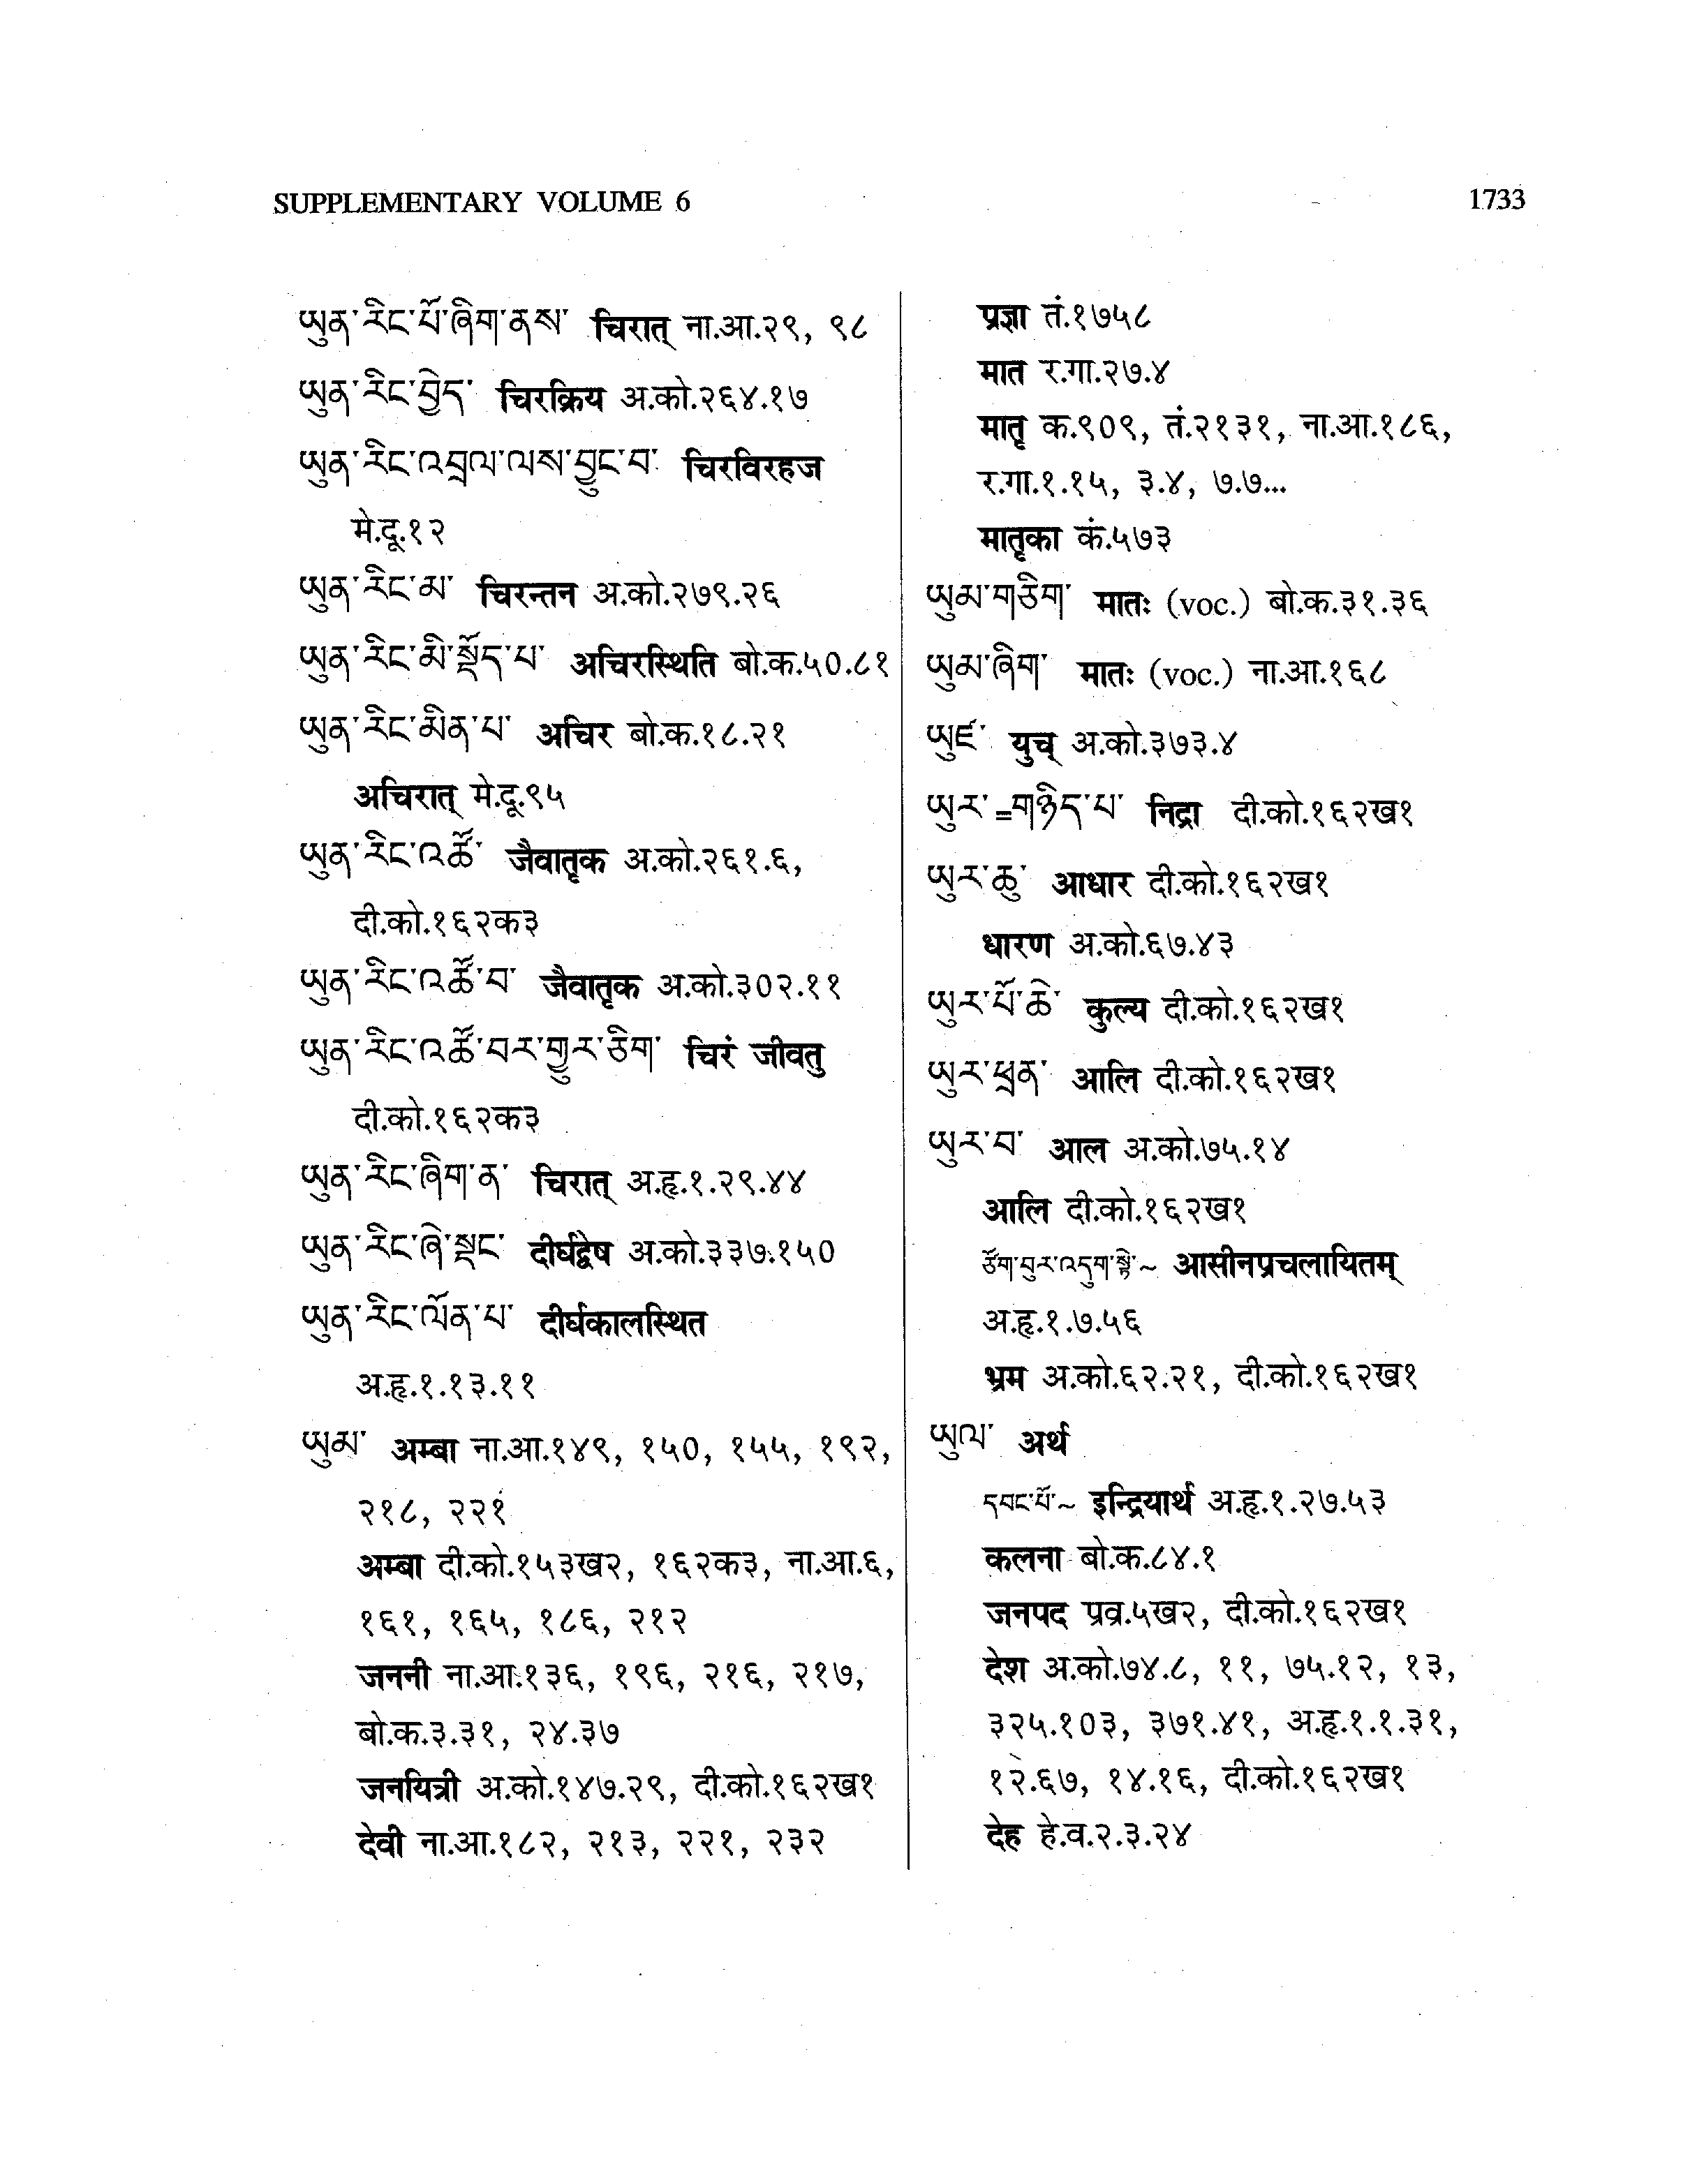 SUPPLEMENTARY VOLUME 6
1733
ཡུན་རིང་པོ་ཞིག་ནས་ चिरात् ना.आ.२९, ९८
ཡུན་རིང་བྱེད་ चिरक्रिय अ.को.२६४.१७
ཡུན་རིང་འབྲལ་ལས་བྱུང་བ་ चिरविरहज
मे.दू.१२
ཡུན་རིང་མ་ चिरन्तन अ.को.२७९.२६
ཡུན་རིང་མི་སྡོད་པ་ अचिरस्थिति बो.क.५०.८१
ཡུན་རིང་མིན་པ་ अचिर बो.क.१८.२१
अचिरात् मे.दू.९५
ཡུན་རིང་འཚོ་ जैवातृक अ.को.२६१.६,
दी.को.१६२क३
ཡུན་རིང་འཚོ་བ་ जैवातृक अ.को.३०२.११
ཡུན་རིང་འཚོ་བར་གྱུར་ཅིག་ चिरं जीवतु
दी.को.१६२क३
ཡུན་རིང་ཞིག་ན་ चिरात् अ.हृ.१.२९.४४
ཡུན་རིང་ཞེ་སྡང་ दीर्घद्वेष अ.को.३३७.१५०
ཡུན་རིང་ལོན་པ་ दीर्घकालस्थित
अ.हृ.१.१३.११
ཡུམ་ अम्बा ना.आ.१४९, १५०, १५५, १९२,
२१८, २२१
अम्बा दी.को.१५३ख२, १६२क३, ना.आ.६,
१६१, १६५, १८६, २१२
जननी ना.आ.१३६, १९६, २१६, २१७,
बो.क.३.३१, २४.३७
जनयित्री अ.को.१४७.२९, दी.को.१६२ख१
देवी ना.आ.१८२, २१३, २२१, २३२
प्रज्ञा तं.१७५८
मात र.गा.२७.४
मातृ क.९०९, तं.२१३१, ना.आ.१८६,
र.गा.१.१५, ३.४, ७.७...
मातृका कं.५७३
ཡུམ་གཅིག་ मातः (voc.) बो.क.३१.३६
ཡུམ་ཞིག་ मातः (voc.) ना.आ.१६८
ཡུཛ་ युच् अ.को.३७३.४
ཡུར་=གཉིད་པ་ निद्रा दी.को.१६२ख१
ཡུར་ཆུ་ आधार दी.को.१६२ख१
धारण अ.को.६७.४३
ཡུར་པོ་ཆེ་ कुल्य दी.को.१६२ख१
ཡུར་ཕྲན་ आलि दी.को.१६२ख१
ཡུར་བ་ आल अ.को.७५.१४
आलि दी.को.१६२ख१
ཙོག་བུར་འདུག་སྟེ་~ आसीनप्रचलायितम्
अ.हृ.१.७.५६
भ्रम अ.को.६२.२१, दी.को.१६२ख१
ཡུལ་ अर्थ
དབང་པོ་~ इन्द्रियार्थ अ.हृ.१.२७.५३
कलना बो.क.८४.१
जनपद प्रव्र.५ख२, दी.को.१६२ख१
देश अ.को.७४.८, ११, ७५.१२, १३,
३२५.१०३, ३७१.४१, अ.हृ.१.१.३१,
१२.६७, १४.१६, दी.को.१६२ख१
देह हे.व.२.३.२४